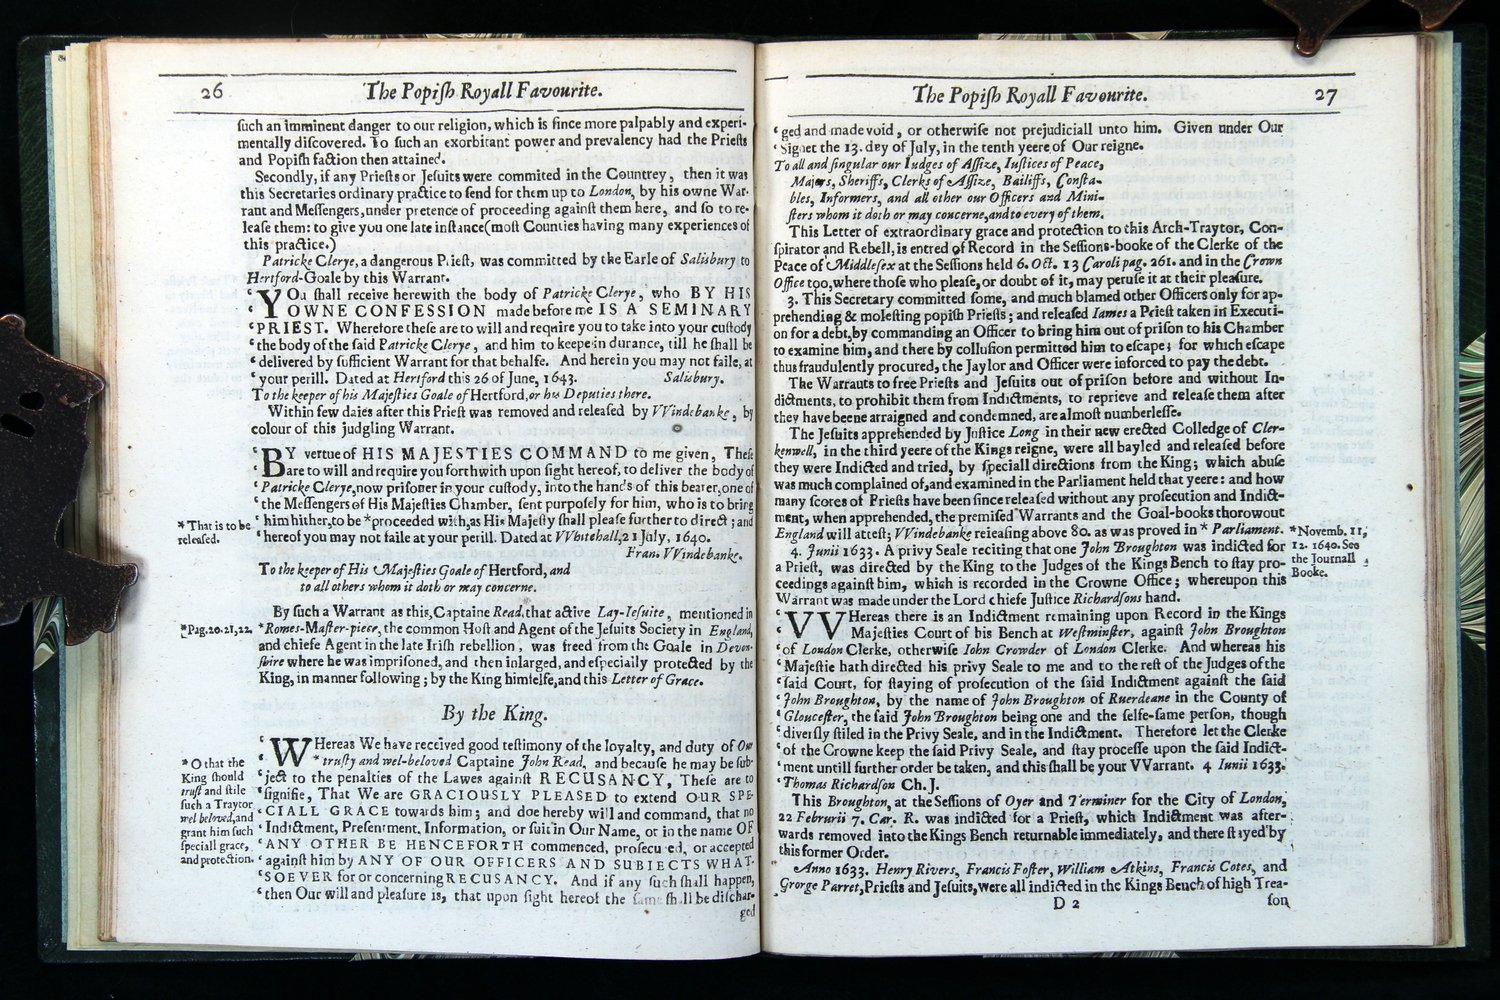 26
The Popiſh Royall Favourite.
ſuch an imminent danger to our religion, which is ſince more palpably and experi-
mentally diſcovered. To ſuch an exorbitant power and prevalency had the Prieſts
and Popiſh faction then attained.
Secondly, if any Prieſts or Jeſuits were commited in the Countrey, then it was
this Secretaries ordinary practice to ſend for them up to London, by his owne War-
rant and Meſſengers, under pretence of proceeding againſt them here, and ſo to re-
leaſe them: to give you one late inſtance (moſt Counties having many experiences of
this practice.)
Patricke Clerye, a dangerous Prieſt, was committed by the Earle of Salisbury to
Hertford-Goale by this Warrant.
‘ YOu ſhall receive herewith the body of Patricke Clerye, who BY HIS
‘ OWNE CONFESSION made before me IS A SEMINARY
‘ PRIEST. Wherefore theſe are to will and require you to take into your cuſtody
‘ the body of the ſaid Patricke Clerye, and him to keepe in durance, till he ſhall be
‘ delivered by ſufficient Warrant for that behalfe. And herein you may not faile, at
‘ your perill. Dated at Hertford this 26 of June, 1643. Salisbury.
To the keeper of his Majeſties Goale of Hertford, or his Deputies there.
Within few daies after this Prieſt was removed and releaſed by VVindebanke, by
colour of this judgling Warrant.
‘ BY vertue of HIS MAJESTIES COMMAND to me given, Theſe
‘ are to will and require you forthwith upon ſight hereof, to deliver the body of
‘ Patricke Clerye, now priſoner in your cuſtody, into the hands of this bearer, one of
‘ the Meſſengers of His Majeſties Chamber, ſent purpoſely for him, who is to bring
‘ him hither, to be *proceeded with, as His Majeſty ſhall pleaſe further to direct; and
‘ hereof you may not faile at your perill. Dated at VVhitehall, 21 July, 1640.
* That is to be
releaſed.
Fran. VVindebanke.
To the keeper of His Majeſties Goale of Hertford, and
to all others whom it doth or may concerne.
By ſuch a Warrant as this, Captaine Read, that active Lay-Ieſuite, mentioned in
*Pag.20.21,22.
*Romes-Maſter-piece, the common Hoſt and Agent of the Jeſuits Society in England,
and chiefe Agent in the late Iriſh rebellion, was freed from the Goale in Devon-
ſhire where he was impriſoned, and then inlarged, and eſpecially protected by the
King, in manner following; by the King himſelfe, and this Letter of Grace.
By the King.
‘ WHereas We have received good teſtimony of the loyalty, and duty of Our
‘ * truſty and wel-beloved Captaine John Read, and becauſe he may be ſub-
‘ ject to the penalties of the Lawes againſt RECUSANCY, Theſe are to
‘ ſignifie, That We are GRACIOUSLY PLEASED to extend OUR SPE-
‘ CIALL GRACE towards him; and doe hereby will and command, that no
‘ Indictment, Preſentment, Information, or ſuit in Our Name, or in the name OF
‘ ANY OTHER BE HENCEFORTH commenced, proſecuted, or accepted
‘ againſt him by ANY OF OUR OFFICERS AND SUBIECTS WHAT-
‘ SOEVER for or concerning RECUSANCY. And if any ſuch ſhall happen,
‘ then Our will and pleaſure is, that upon ſight hereof the ſame ſhall be diſchar-
ged
* O that the
King ſhould
truſt and ſtile
ſuch a Traytor
wel beloved, and
grant him ſuch
ſpeciall grace,
and protection.
The Popiſh Royall Favourite.
27
‘ ged and made void, or otherwiſe not prejudiciall unto him. Given under Our
‘ Signet the 13. day of July, in the tenth yeere of Our reigne.
To all and ſingular our Iudges of Aſſize, Iuſtices of Peace,
Majors, Sheriffs, Clerks of Aſſize, Bailiffs, Conſta-
bles, Informers, and all other our Officers and Mini-
ſters whom it doth or may concerne, and to every of them.
This Letter of extraordinary grace and protection to this Arch-Traytor, Con-
ſpirator and Rebell, is entred of Record in the Seſſions-booke of the Clerke of the
Peace of Middleſex at the Seſſions held 6. Oct. 13 Caroli pag. 261. and in the Crown
Office too, where thoſe who pleaſe, or doubt of it, may peruſe it at their pleaſure.
3. This Secretary committed ſome, and much blamed other Officers only for ap-
prehending & moleſting popiſh Prieſts; and releaſed Iames a Prieſt taken in Executi-
on for a debt, by commanding an Officer to bring him out of priſon to his Chamber
to examine him, and there by colluſion permitted him to eſcape; for which eſcape
thus fraudulently procured, the Jaylor and Officer were inforced to pay the debt.
The Warrauts to free Prieſts and Jeſuits out of priſon before and without In-
dictments, to prohibit them from Indictments, to reprieve and releaſe them after
they have beene arraigned and condemned, are almoſt numberleſſe.
The Jeſuits apprehended by Juſtice Long in their new erected Colledge of Cler-
kenwell, in the third yeere of the Kings reigne, were all bayled and releaſed before
they were Indicted and tried, by ſpeciall directions from the King; which abuſe
was much complained of, and examined in the Parliament held that yeere: and how
many ſcores of Prieſts have been ſince releaſed without any proſecution and Indict-
ment, when apprehended, the premiſed Warrants and the Goal-books thorowout
England will atteſt; VVindebanke releaſing above 80. as was proved in * Parliament.
*Novemb. 11,
12. 1640. See
the Journall
Booke.
4. Junii 1633. A privy Seale reciting that one John Broughton was indicted for
a Prieſt, was directed by the King to the Judges of the Kings Bench to ſtay pro-
ceedings againſt him, which is recorded in the Crowne Office; whereupon this
Warrant was made under the Lord chiefe Juſtice Richardſons hand.
‘ VVHereas there is an Indictment remaining upon Record in the Kings
‘ Majeſties Court of his Bench at Weſtminſter, againſt John Broughton
‘ of London Clerke, otherwiſe Iohn Crowder of London Clerke. And whereas his
‘ Majeſtie hath directed his privy Seale to me and to the reſt of the Judges of the
‘ ſaid Court, for ſtaying of proſecution of the ſaid Indictment againſt the ſaid
‘ John Broughton, by the name of John Broughton of Ruerdeane in the County of
‘ Glouceſter, the ſaid John Broughton being one and the ſelfe-ſame perſon, though
‘ diverſly ſtiled in the Privy Seale, and in the Indictment. Therefore let the Clerke
‘ of the Crowne keep the ſaid Privy Seale, and ſtay proceſſe upon the ſaid Indict-
‘ ment untill further order be taken, and this ſhall be your VVarrant. 4 Iunii 1633.
‘ Thomas Richardſon Ch. J.
This Broughton, at the Seſſions of Oyer and Terminer for the City of London,
22 Februrii 7. Car. R. was indicted for a Prieſt, which Indictment was after-
wards removed into the Kings Bench returnable immediately, and there ſtayed by
this former Order.
Anno 1633. Henry Rivers, Francis Foſter, William Atkins, Francis Cotes, and
Grorge Parret, Prieſts and Jeſuits, were all indicted in the Kings Bench of high Trea-
D 2
ſon,